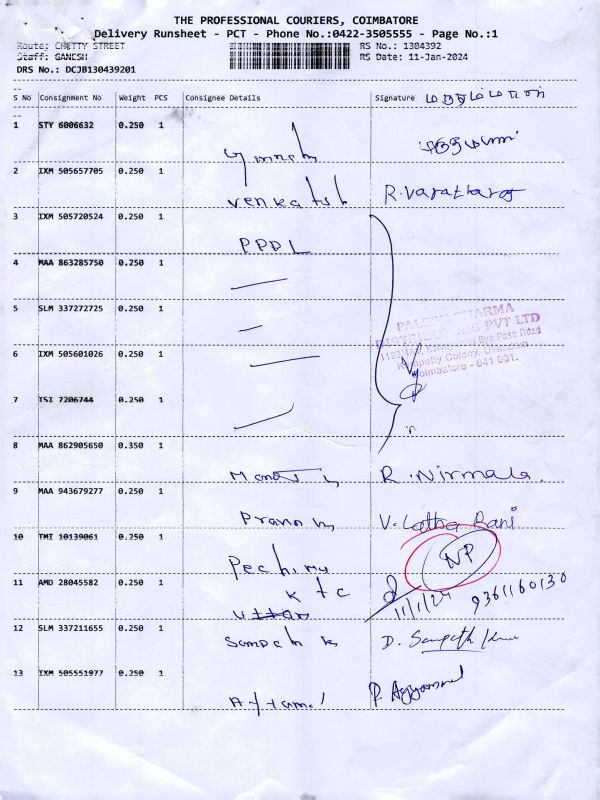 THE PROFESSIONAL COURIERS, COIMBATORE
Delivery Runsheet - PCT - Phone No.:0422-3505555 - Page No.:1
Route: CHETTY STREET
RS No.: 1304392
Staff: GANESH
RS Date: 11-Jan-2024
DRS No.: DCJB130439201
S No Consignment No Weight PCS Consignee Details Signature
1 STY 6006632 0.250 1
2 IXM 505657705 0.250 1 Venkatesh
3 IXM 505720524 0.250 1 PPDL
4 MAA 863285750 0.250 1
5 SLM 337272725 0.250 1
PHARMA
PVT LTD
Bye Pass Road
Colony,
Coimbatore - 641 001.
6 IXM 505601026 0.250 1
7 TSI 7206744 0.250 1
8 MAA 862905650 0.350 1 R. Nirmala.
9 MAA 943679277 0.250 1 V. Latha Rani
10 TMI 10139061 0.250 1 NP
11 AMD 28045582 0.250 1 K t c 11/1/24 9361160130
12 SLM 337211655 0.250 1 Sampath k D. Sampath
13 IXM 505551977 0.250 1 P. Ayyammal